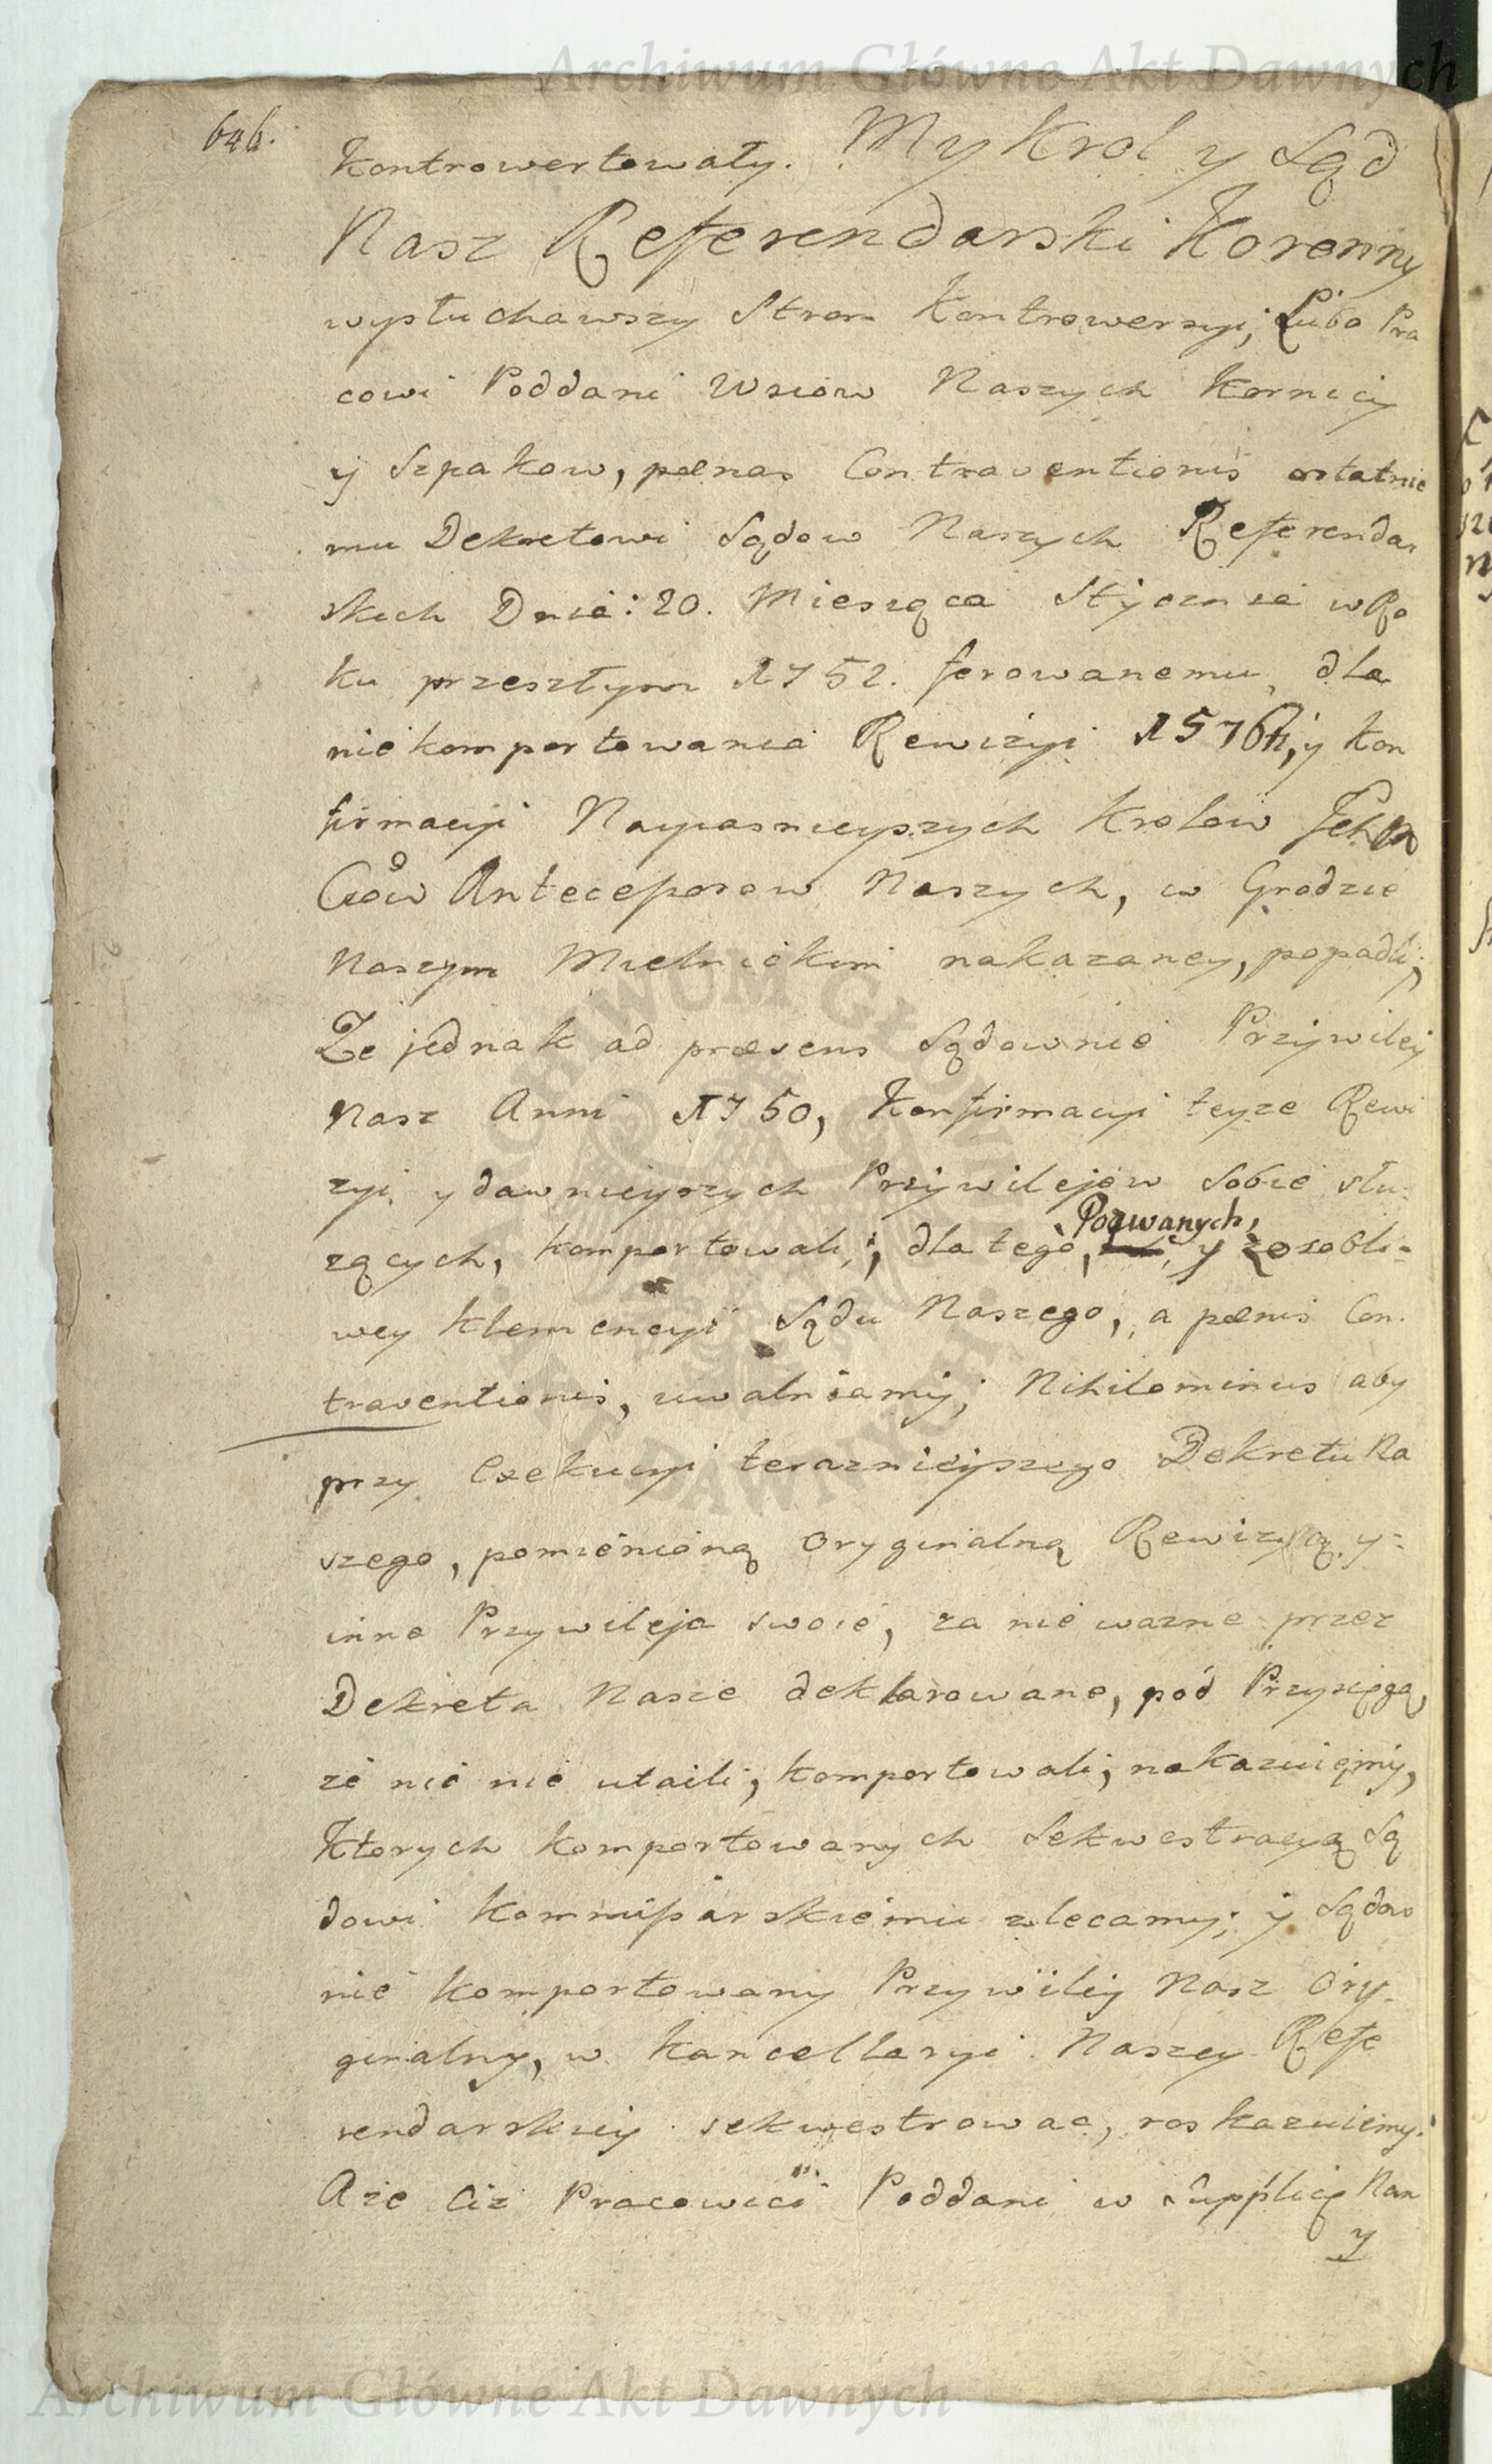 Archiwum Główne Akt Dawnych
646.
kontrowertowały. My Krol y Sąd
Nasz Referendarski Koronny
wysłuchawszy Stron Kontrowersyi; Lubo Pra
cowi Poddani Wsiow Naszych Kornicy
y Szpakow, pænas Contraventionis ostatnie
mu Dekretowi Sądow Naszych Referendar
skich Dnia: 20. Miesząca Stycznia w Ro
ku przeszłym 1752. ferowanemu, dla
nie komportowania Rewizyi, y Kon
firmacyi Nayiasnieyszych Krolow
Antecessorow Naszych, w Grodzie
Naszym Mielnickim nakazaney, popadli;
Ze jednak ad præsens Sądownie Przywiley
Nasz Anni 1750, Konfirmacyi teyze Rewi
zyi y dawnieyszych Przywilejow sobie słu-
żących, komportowali; dla tego, Pozwanych, y zosobli-
wey Klemencyi Sądu Naszego, a pænis Con.
traventionis, uwalniamy; Nihilominus aby
przy Exekucyi teraznieyszego Dekretu Na
szego, pomienioną Oryginalną Rewizyą y
inne Przywileja swoie, za nie wazne przez
Dekreta Nasze deklarowane, pod Przysięgą,
ze nic nie utaili, komportowali, nakazuięmy,
Ktorych komportowanych Sekwestracyą Są
dowi Kommissarskiemu zlecamy; y Sądow
nie komportowany Przywiley Nasz Ory-
ginalny, w Kancellaryi Naszey Refe
rendarskiey sekwestrowac, roskazuiemy.
A ze Ciz Pracowici Poddani w Supplicę Nan
y
ARCHIWUM GŁÓWNE AKT DAWNYCH
Archiwum Główne Akt Dawnych